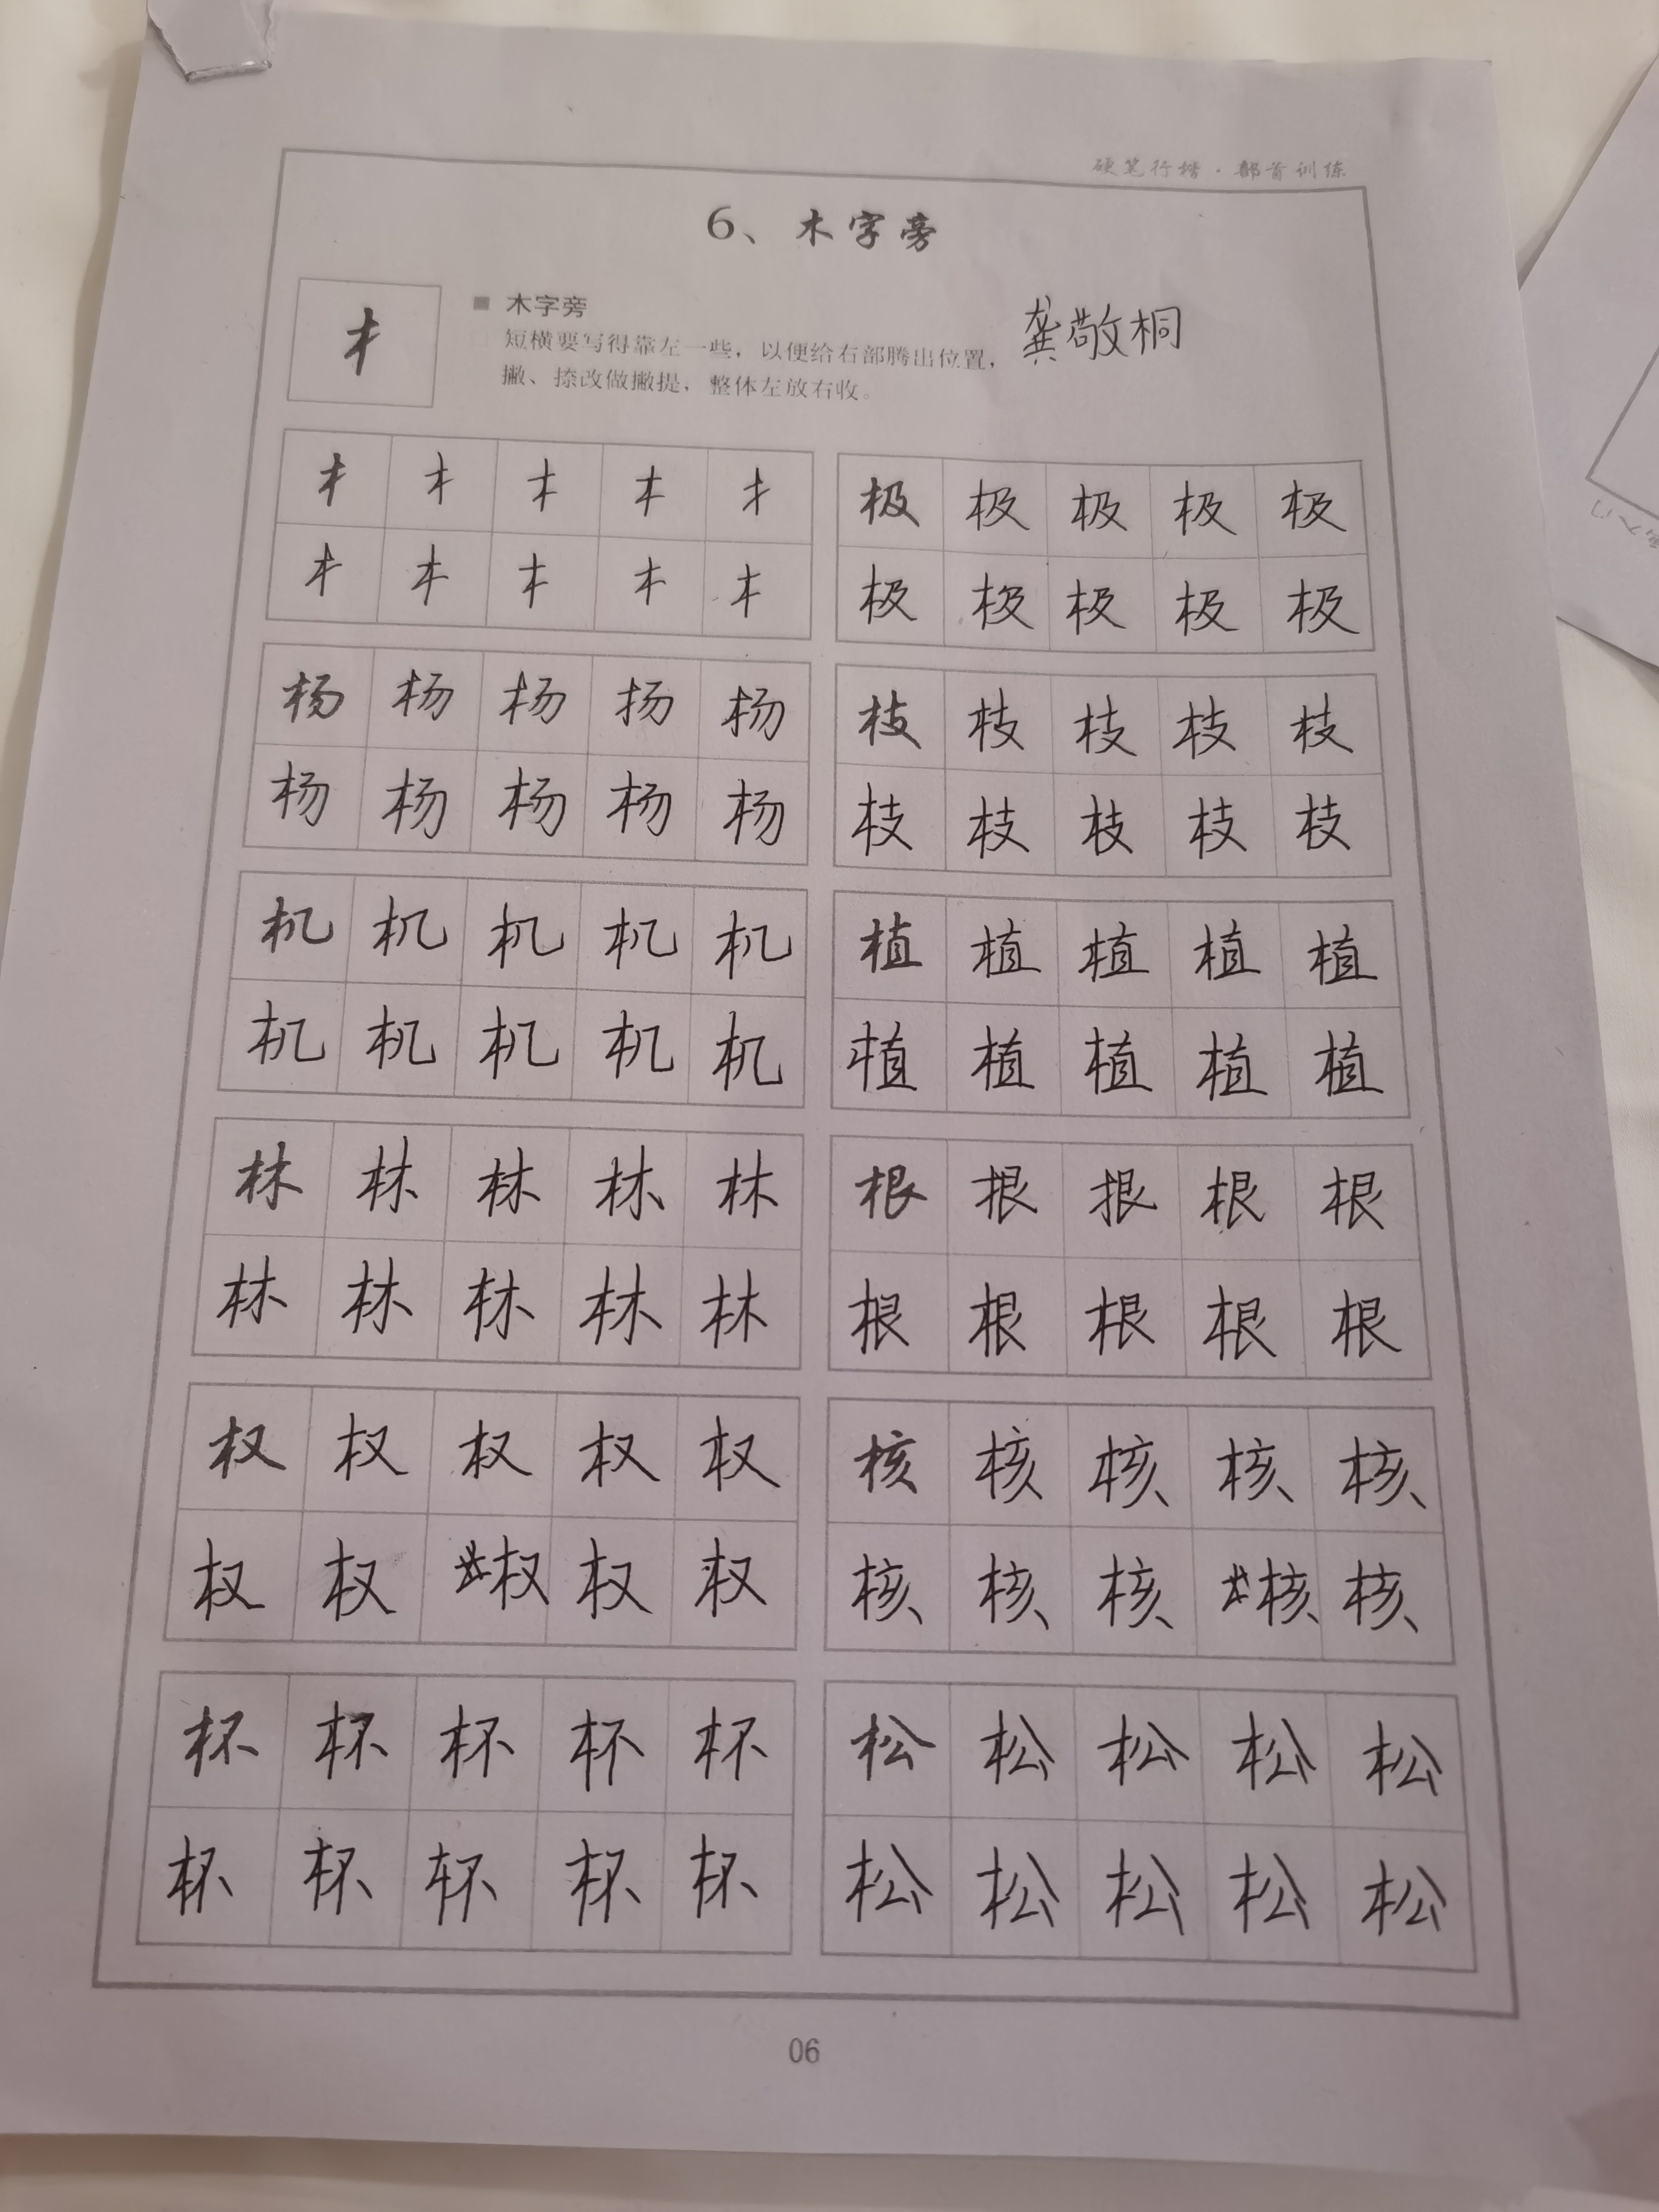 硬笔行楷·部首训练
6、木字旁
木字旁
短横要写得靠左一些，以便给右部腾出位置，
撇、捺改做撇提，整体左放右收。
龚敬桐
木 木 木 木 木
木 木 木 木 木
极 极 极 极 极
极 极 极 极 极
杨 杨 杨 杨 杨
杨 杨 杨 杨 杨
枝 枝 枝 枝 枝
枝 枝 枝 枝 枝
机 机 机 机 机
机 机 机 机 机
植 植 植 植 植
植 植 植 植 植
林 林 林 林 林
林 林 林 林 林
根 根 根 根 根
根 根 根 根 根
权 权 权 权 权
权 权 权 权 权
核 核 核 核 核
核 核 核 核 核
杯 杯 杯 杯 杯
杯 杯 杯 杯 杯
松 松 松 松 松
松 松 松 松 松
06